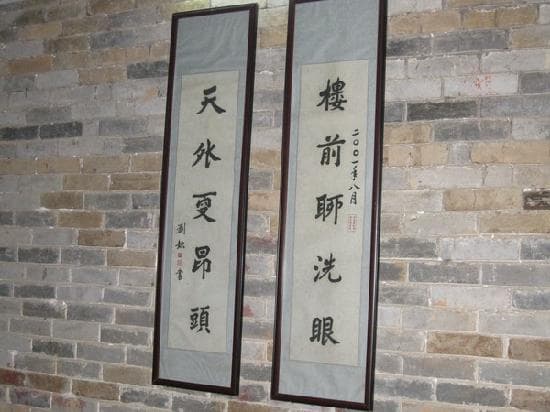 樓前聊洗眼
二〇〇一年八月
天外更昂頭